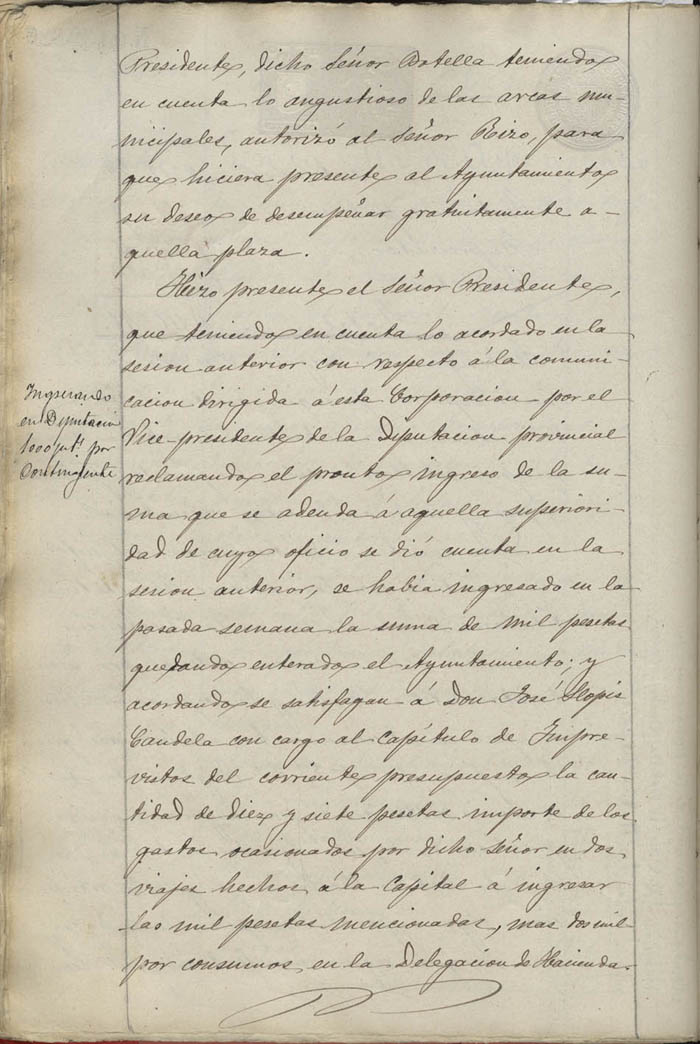 Presidente, dicho Señor Botella teniendo
en cuenta lo angustioso de las arcas mu-
nicipales, autorizó al Señor Rizo, para
que hiciera presente al Ayuntamiento
su deseo de desempeñar gratuitamente a-
quella plaza.
Hizo presente el Señor Presidente,
que teniendo en cuenta lo acordado en la
sesion anterior con respecto á la comuni-
cacion dirigida á esta Corporacion por el
Vice-presidente de la Diputacion provincial
reclamando el pronto ingreso de la su-
ma que se adeuda á aquella superiori-
dad de cuyo oficio se dió cuenta en la
sesion anterior, se habia ingresado en la
pasada semana la suma de mil pesetas
quedando enterado el Ayuntamiento; y
acordando se satisfagan á Don José Llopis
Candela con cargo al Capítulo de Impre-
vistos del corriente presupuesto la can-
tidad de diez y siete pesetas importe de los
gastos ocasionados por dicho Señor en dos
viajes hechos á la Capital á ingresar
las mil pesetas mencionadas, mas dos mil
por consumos en la Delegacion de Hacienda.
Ingresando
en Diputacion
1000 pts por
Contingente